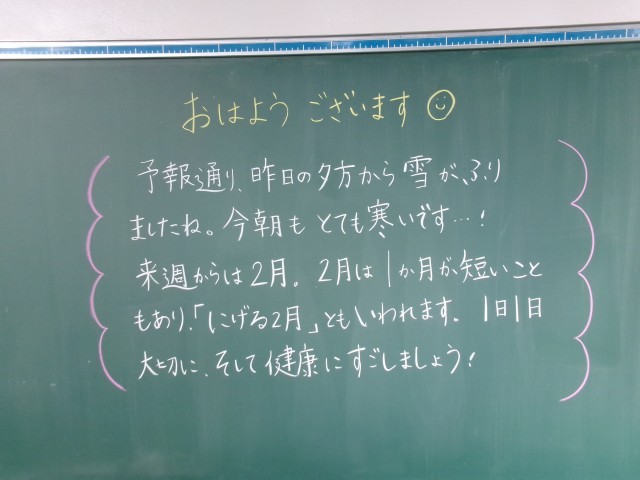 おはようございます
予報通り、昨日の夕方から雪がふり
ましたね。今朝もとても寒いです…！
来週からは2月。2月は1か月が短いこと
もあり、「にげる2月」ともいわれます。1日1日
大切に、そして健康にすごしましょう！